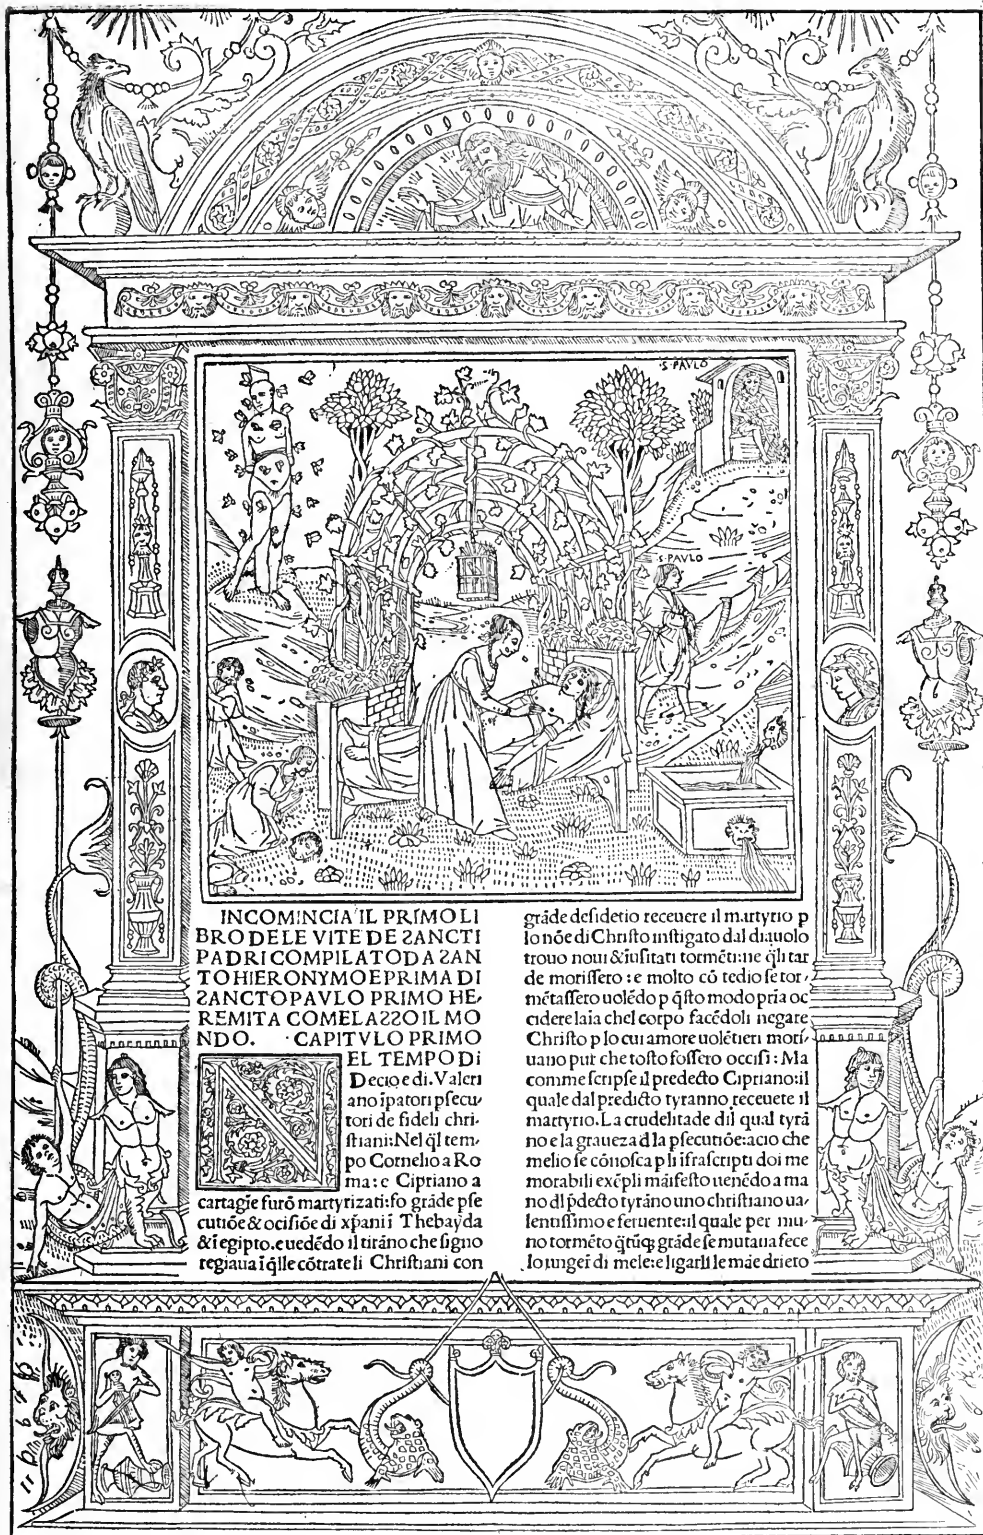 ·S·PAVLO
S·PAVLO
INCOMINCIA IL PRIMO LI
BRO DELE VITE DE SANCTI
PADRI COMPILATO DA SAN
TO HIERONYMO E PRIMA DI
SANCTO PAVLO PRIMO HE-
REMITA COME LASSO IL MO
NDO. ·CAPITVLO PRIMO
NEL TEMPO Di
Decio e di. Valeri
ano īpatori psecu-
tori de fideli chri-
stiani: Nel q̄l tem-
po Cornelio a Ro
ma: e Cipriano a
cartagie furō martyrizati: fo grāde pse
cutiōe & ocisiōe di xp̄anii Thebayda
& ī egipto. e uedēdo il tirāno che signo
regiaua ī q̄lle cōtrate li Christiani con
grāde desiderio receuere il martyrio p
lo nōe di Christo instigato dal diauolo
trouo noui & iusitati tormēti: ne q̄li tar
de morissero: e molto cō tedio se tor-
mētassero uolēdo p q̄sto modo pria oc
cidere laia chel corpo facēdoli negare
Christo p lo cui amore uolētieri morí-
uano pur che tosto fossero occisi: Ma
comme scripse il predecto Cipriano: il
quale dal predicto tyranno receuete il
martyrio. La crudelitade dil qual tyrā
no e la graueza d la psecutiōe: acio che
melio se cōnosca p li ifrascripti doi me
morabili exēpli māifesto uenēdo a ma
no dl p̄decto tyrāno uno christiano ua-
lentissimo e feruente: il quale per niu-
no tormēto q̄tūq; grāde se mutaua fece
lo ungeī di mele: e ligarli le māe driero